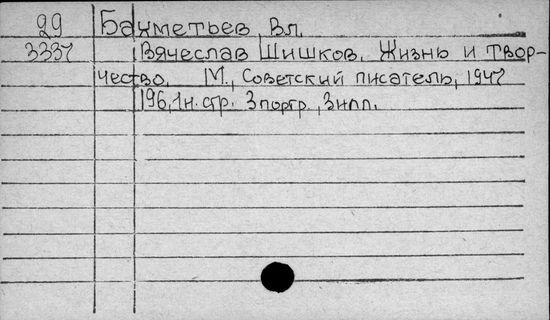 99 Бахметьев, Вл.
3337 Вячеслав Шишков. Жизнь и твор-
чество. М., Советский писатель, 1947
196, 1 н. стр. 3 портр., 3 илл.